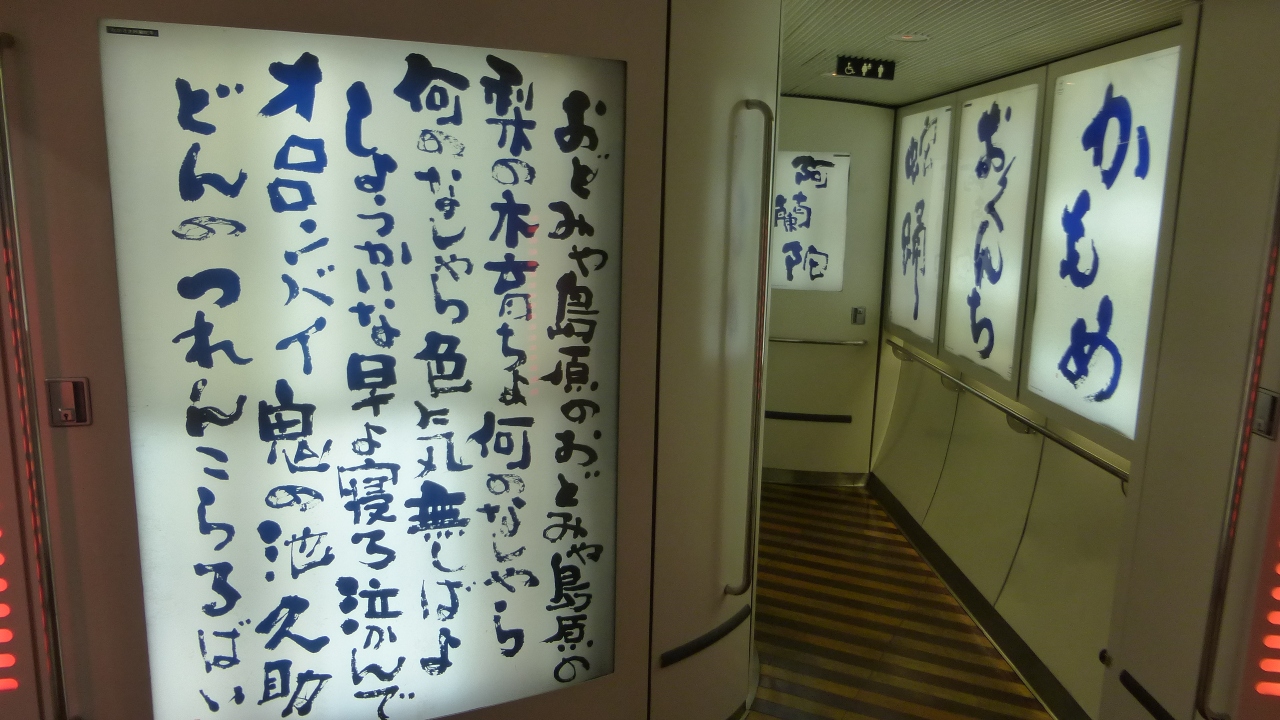 おどみや島原のおどみや島原の
梨の木育ちよ何のなしやら
何のなしやら色気無しばよ
しょうかいな早よ寝ろ泣かんで
オロロンバイ鬼の池久助
どんのつれんこらるばい
かもめ
おくんち
蛇踊り
阿蘭陀